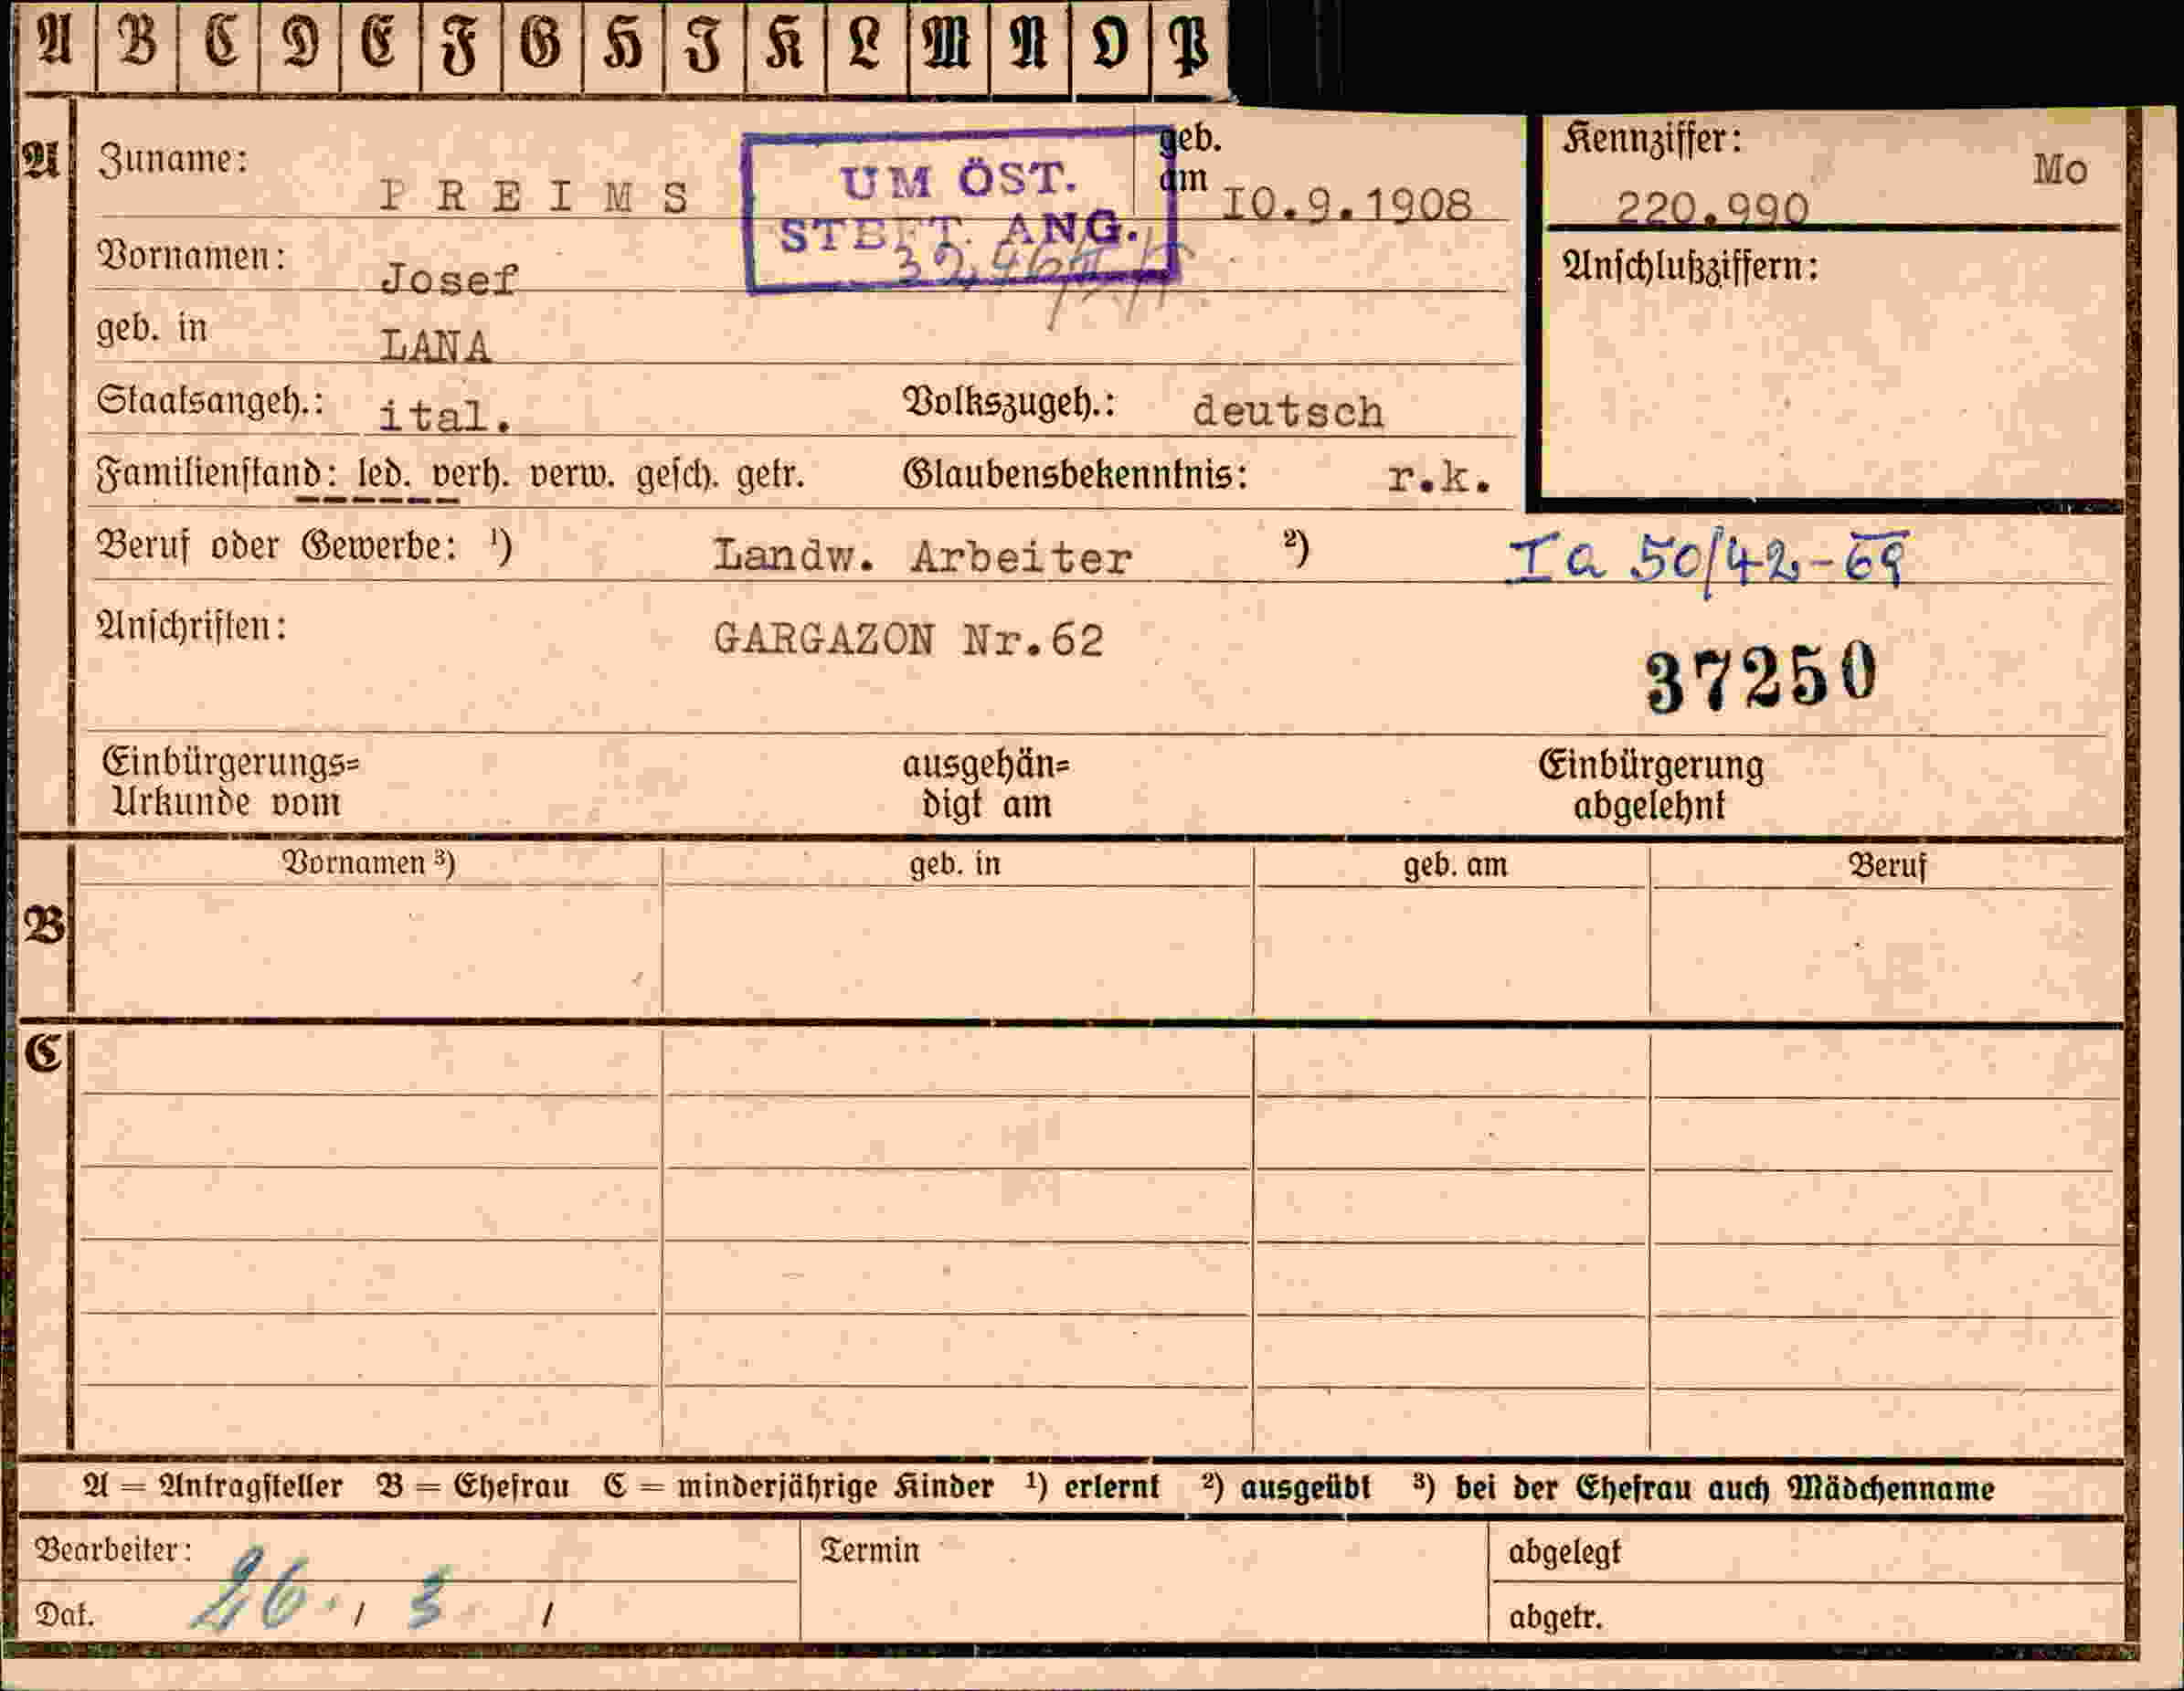 A B C D E F G H I K L M N O P
A
Zuname: PREIMS
UM ÖST.
STBFT. ANG.
geb. am 10.9.1908
Kennziffer: Mo
220.990
Vornamen: Josef
Anschlußziffern:
geb. in LANA
Staatsangeh.: ital. Volkszugeh.: deutsch
Familienstand: led. verh. verw. gesch. getr. Glaubensbekenntnis: r.k.
Beruf oder Gewerbe: ¹) Landw. Arbeiter ²) Ia 50/42-69
Anschriften: GARGAZON Nr.62
37250
Einbürgerungs= ausgehän= Einbürgerung
Urkunde vom digt am abgelehnt
Vornamen ³) geb. in geb. am Beruf
B
C
A = Antragsteller B = Ehefrau C = minderjährige Kinder ¹) erlernt ²) ausgeübt ³) bei der Ehefrau auch Mädchenname
Bearbeiter: Termin abgelegt
Dat. 26. / 3 / abgetr.